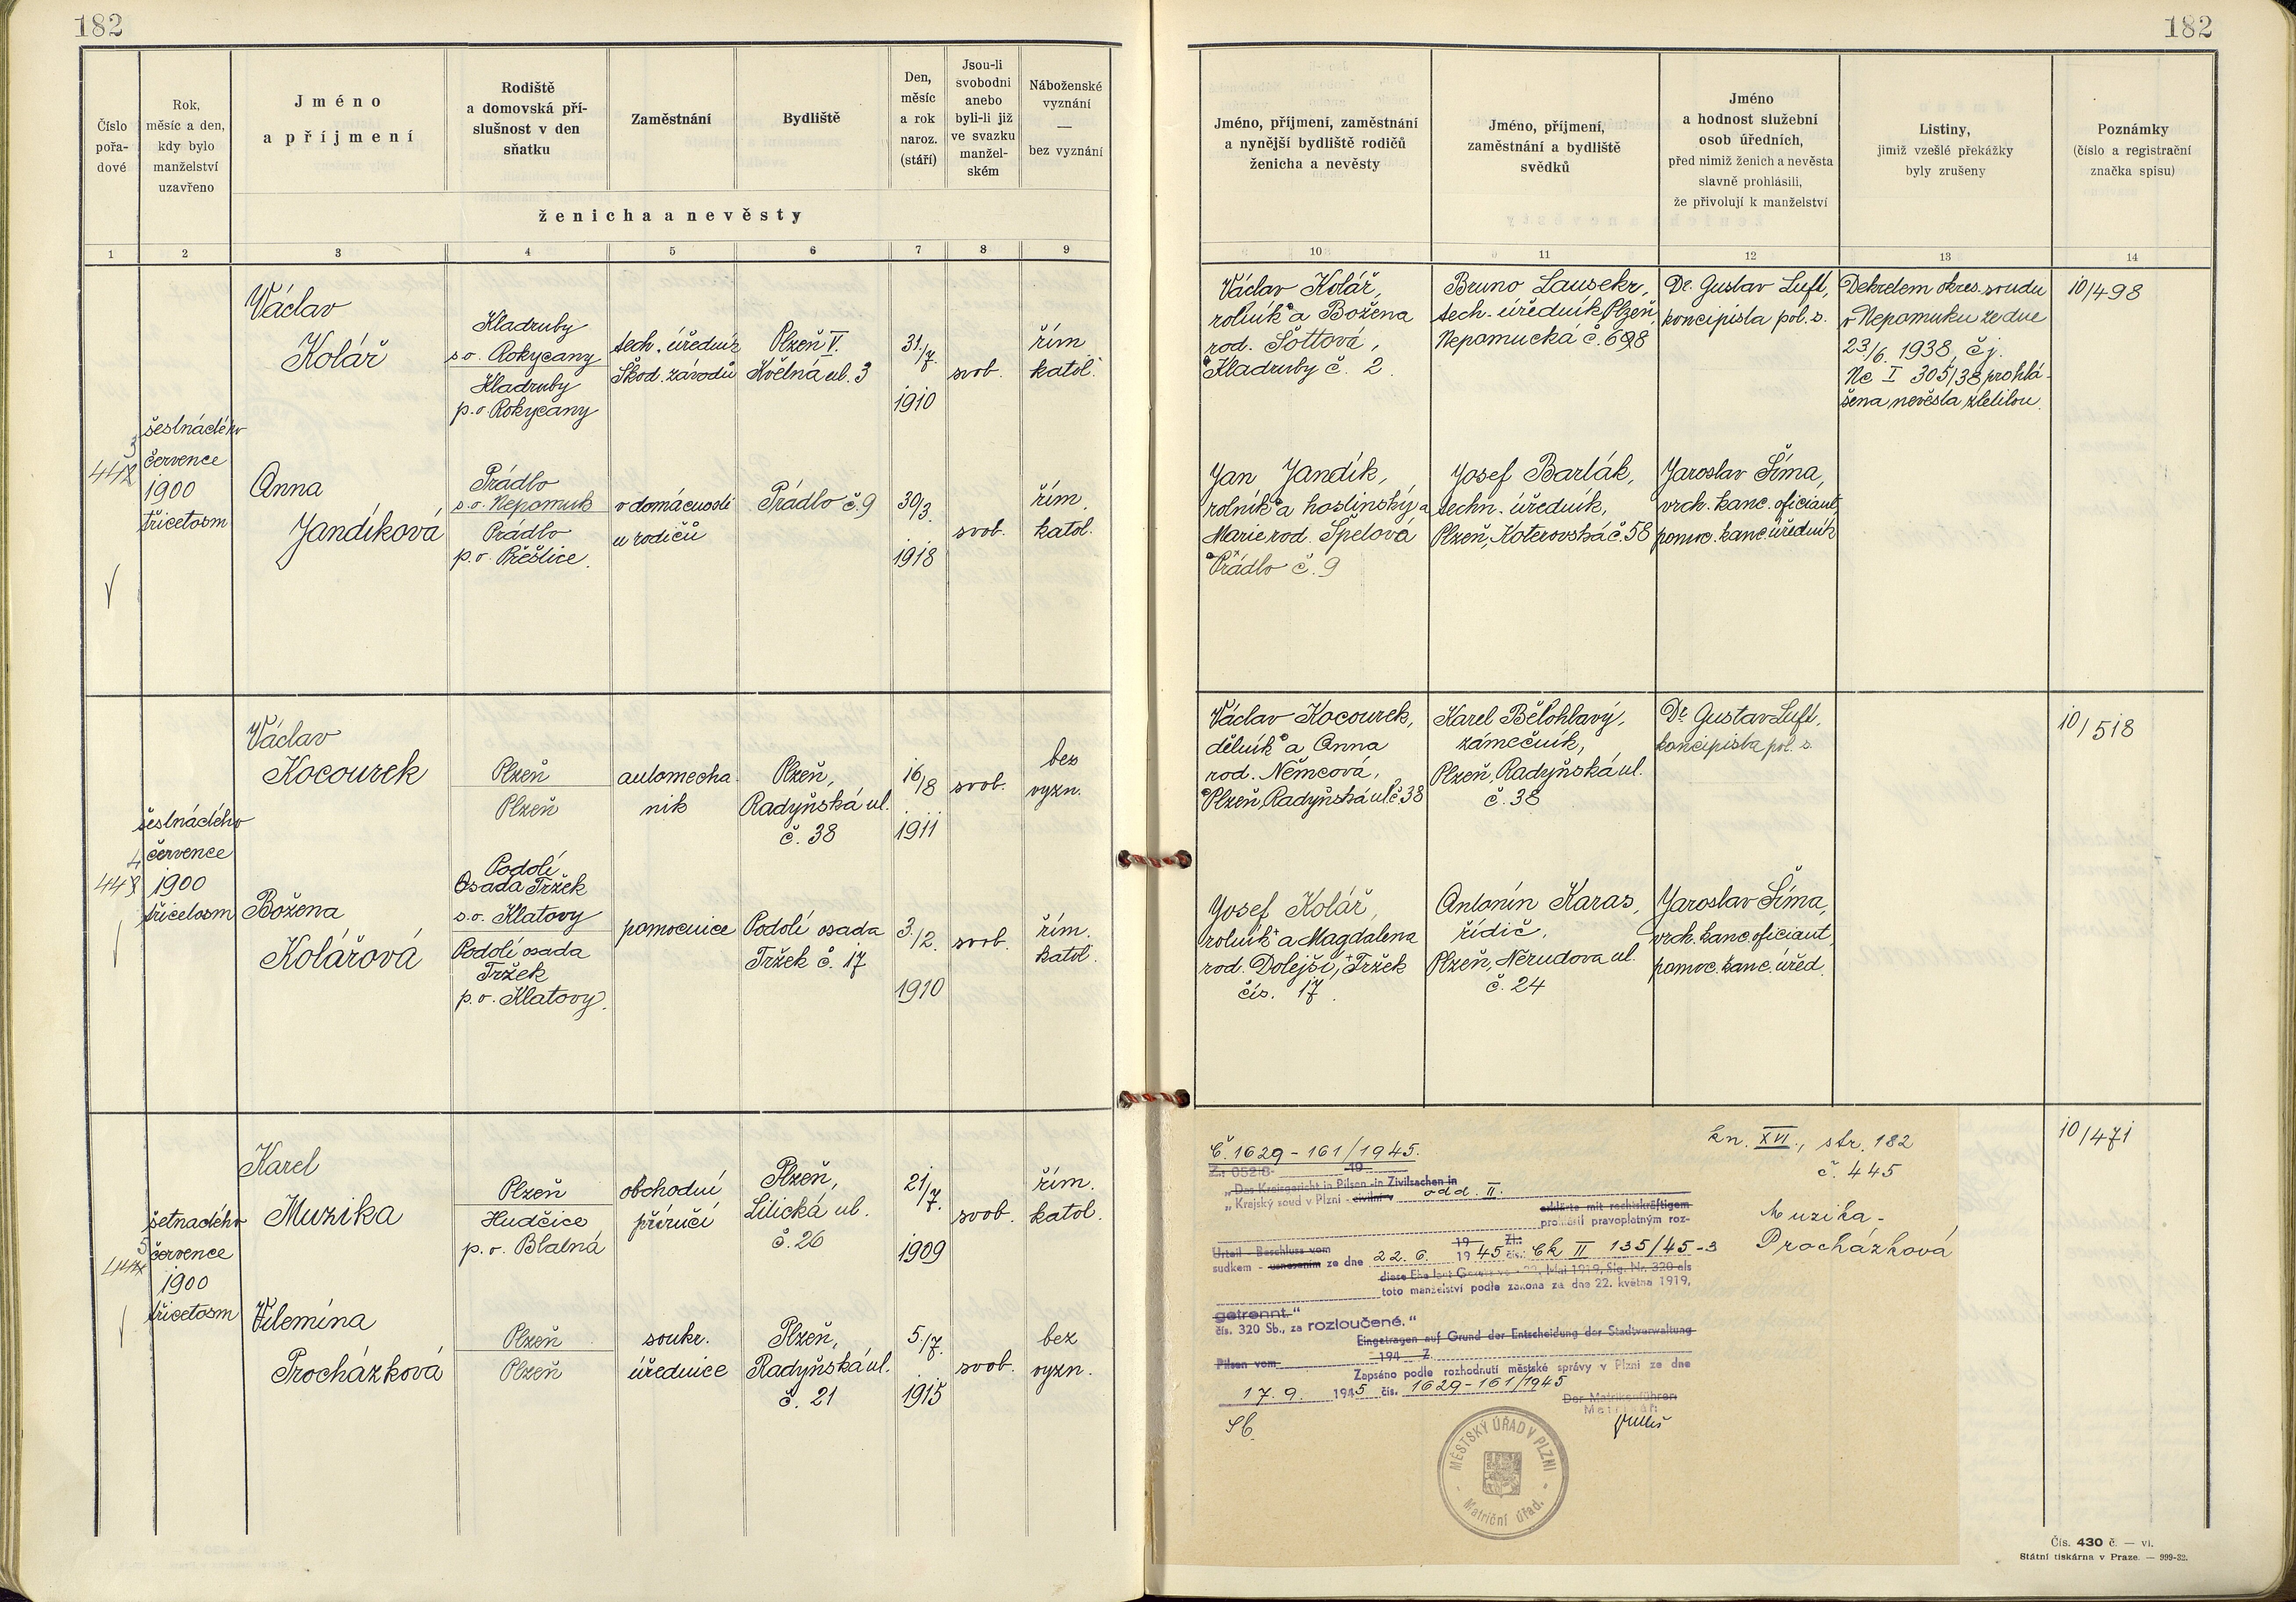 182
182
Číslo
pořa-
dové
Rok,
měsíc a den,
kdy bylo
manželství
uzavřeno
Jméno
a příjmení
Rodiště
a domovská pří-
slušnost v den
sňatku
Zaměstnání
Bydliště
Den,
měsíc
a rok
naroz.
(stáří)
Jsou-li
svobodni
anebo
byli-li již
ve svazku
manžel-
ském
Náboženské
vyznání
—
bez vyznání
ženicha a nevěsty
1 2 3 4 5 6 7 8 9
Jméno, příjmení, zaměstnání
a nynější bydliště rodičů
ženicha a nevěsty
Jméno, příjmení,
zaměstnání a bydliště
svědků
Jméno
a hodnost služební
osob úředních,
před nimiž ženich a nevěsta
slavně prohlásili,
že přivolují k manželství
Listiny,
jimiž vzešlé překážky
byly zrušeny
Poznámky
(číslo a registrační
značka spisu)
10 11 12 13 14
443
šestnáctého
července
1900
třicetosm
Václav
Kolář
Kladruby
s.o. Rokycany
Kladruby
p.o. Rokycany
tech. úředník
Škod. závodů
Plzeň V.
Květná ul. 3
31./7.
1910
svob.
řím
katol.
Anna
Jandíková
Prádlo
s.o. Nepomuk
Prádlo
p.o. Přeštice.
v domácnosti
u rodičů
Prádlo č. 9
30/3.
1918
svob.
řím.
katol.
Václav Kolář,
rolník a Božena
rod. Šottová,
Kladruby č. 2.
Jan Jandík,
rolník a hostinský a
Marie rod. Špelová
Prádlo č. 9
Bruno Lausekr,
tech. úředník Plzeň,
Nepomucká č. 698
Josef Barták,
techn. úředník,
Plzeň, Koterovská č. 58
Dr. Gustav Luft,
koncipista pol. s.
Jaroslav Šíma,
vrch. kanc. oficiant,
pomoc. kanc. úředník
Dekretem okres. soudu
v Nepomuku ze dne
23/6. 1938, čj.
Nc I 305/38 prohlá-
šena nevěsta zletilou.
10/498
444
šestnáctého
července
1900
třicetosm
Václav
Kocourek
Plzeň
Plzeň
automecha-
nik
Plzeň,
Radyňská ul.
č. 38
16/8
1911
svob.
bez
vyzn.
Božena
Kolářová
Podolí
Osada Tržek
s.o. Klatovy
Podolí osada
Tržek
p.o. Klatovy.
pomocnice
Podolí osada
Tržek č. 17
3./2.
1910
svob.
řím.
katol.
Václav Kocourek,
dělník a Anna
rod. Němcová,
Plzeň, Radyňská ul. č. 38
Josef Kolář,
rolník a Magdalena
rod. Dolejší, Tržek
čís. 17.
Karel Bělohlavý,
zámečník,
Plzeň, Radyňská ul.
č. 38
Antonín Karas,
řidič,
Plzeň, Nérudova ul.
č. 24
Dr. Gustav Luft,
koncipista pol. s.
Jaroslav Šíma,
vrch. kanc. oficiant,
pomoc. kanc. úřed.
10/518
445
šetnáctého
července
1900
třicetosm
Karel
Muzika
Plzeň
Hudčice
p.o. Blatná
obchodní
příručí
Plzeň,
Lilická ul.
č. 26
21/7.
1909
svob.
řím.
katol.
Vilemína
Procházková
Plzeň
Plzeň
soukr.
úřednice
Plzeň,
Radyňská ul.
č. 21
5./7.
1915
svob.
bez
vyzn.
10/471
Č. 1629-161/1945.
kn. XVI., str. 182
č. 445
Muzika -
Procházková
„Das Kreisgericht in Pilsen in Zivilsachen in
„Krajský soud v Plzni - civilní v odd. II.
erklärte mit rechtskräftigem
prohlásil pravoplatným roz-
Urteil - Beschluss vom 19 Zl.
sudkem - usnesením ze dne 22. 6. 1945 čís. Ck II 135/45-3
diese Ehe laut Gesetz vom 22. Mai 1919, Slg. Nr. 320 als
toto manželství podle zákona ze dne 22. května 1919,
getrennt.“
čís. 320 Sb., za rozloučené.“
Eingetragen auf Grund der Entscheidung der Stadtverwaltung
Pilsen vom 194 Z.
Zapsáno podle rozhodnutí městské správy v Plzni ze dne
17. 9. 1945 čís. 1629-161/1945
Der Matrikenführer:
Matrikář:
MĚSTSKÝ ÚŘAD V PLZNI
- Matriční úřad. -
Čís. 430 č. — vi.
Státní tiskárna v Praze. — 999-32.